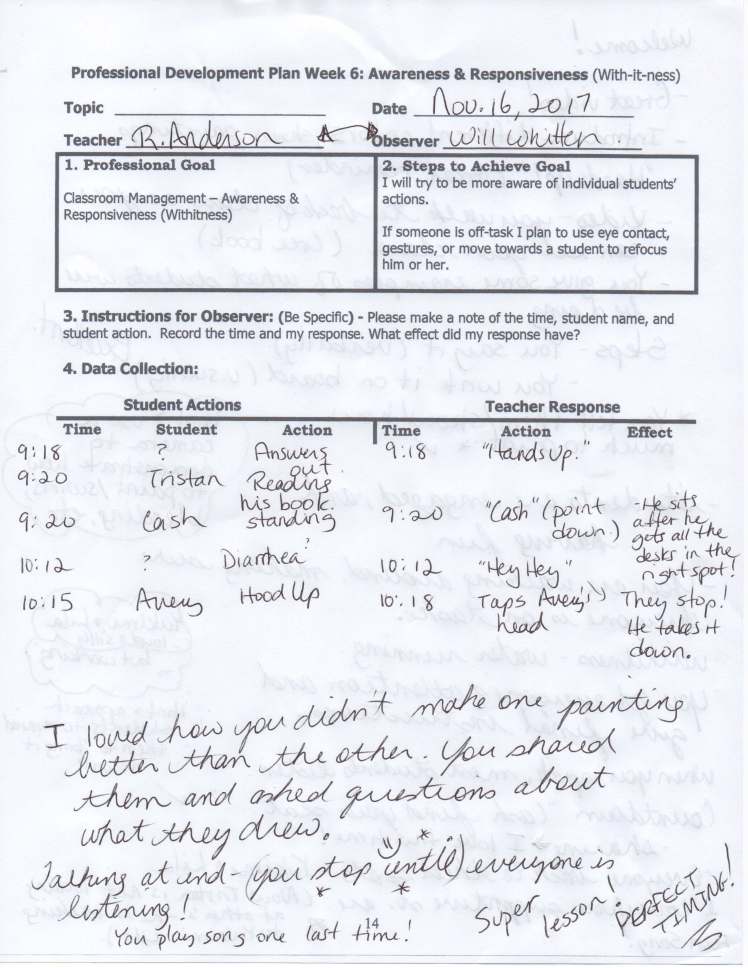 Professional Development Plan Week 6: Awareness & Responsiveness (With-it-ness)
Topic Date Nov. 16, 2017
Teacher R. Anderson Observer Will Whitten
1. Professional Goal
Classroom Management – Awareness &
Responsiveness (Withitness)
2. Steps to Achieve Goal
I will try to be more aware of individual students'
actions.
If someone is off-task I plan to use eye contact,
gestures, or move towards a student to refocus
him or her.
3. Instructions for Observer: (Be Specific) - Please make a note of the time, student name, and
student action. Record the time and my response. What effect did my response have?
4. Data Collection:
Student Actions Teacher Response
Time Student Action Time Action Effect
9:18 ? Answers out 9:18 "Hands Up."
9:20 Tristan Reading his book.
9:20 Cash standing 9:20 "Cash" (point down.) -He sits after he gets all the desks in the right spot!
10:12 ? Diarrhea? 10:12 "Hey Hey" They stop!
10:15 Avery Hood Up 10:18 Taps Avery's head He takes it down.
I loved how you didn't make one painting
better than the other. You shared
them and asked questions about
what they drew.
Talking at end - (you stop until) everyone is
listening!
You play song one last time!
Super lesson!
PERFECT TIMING!
14